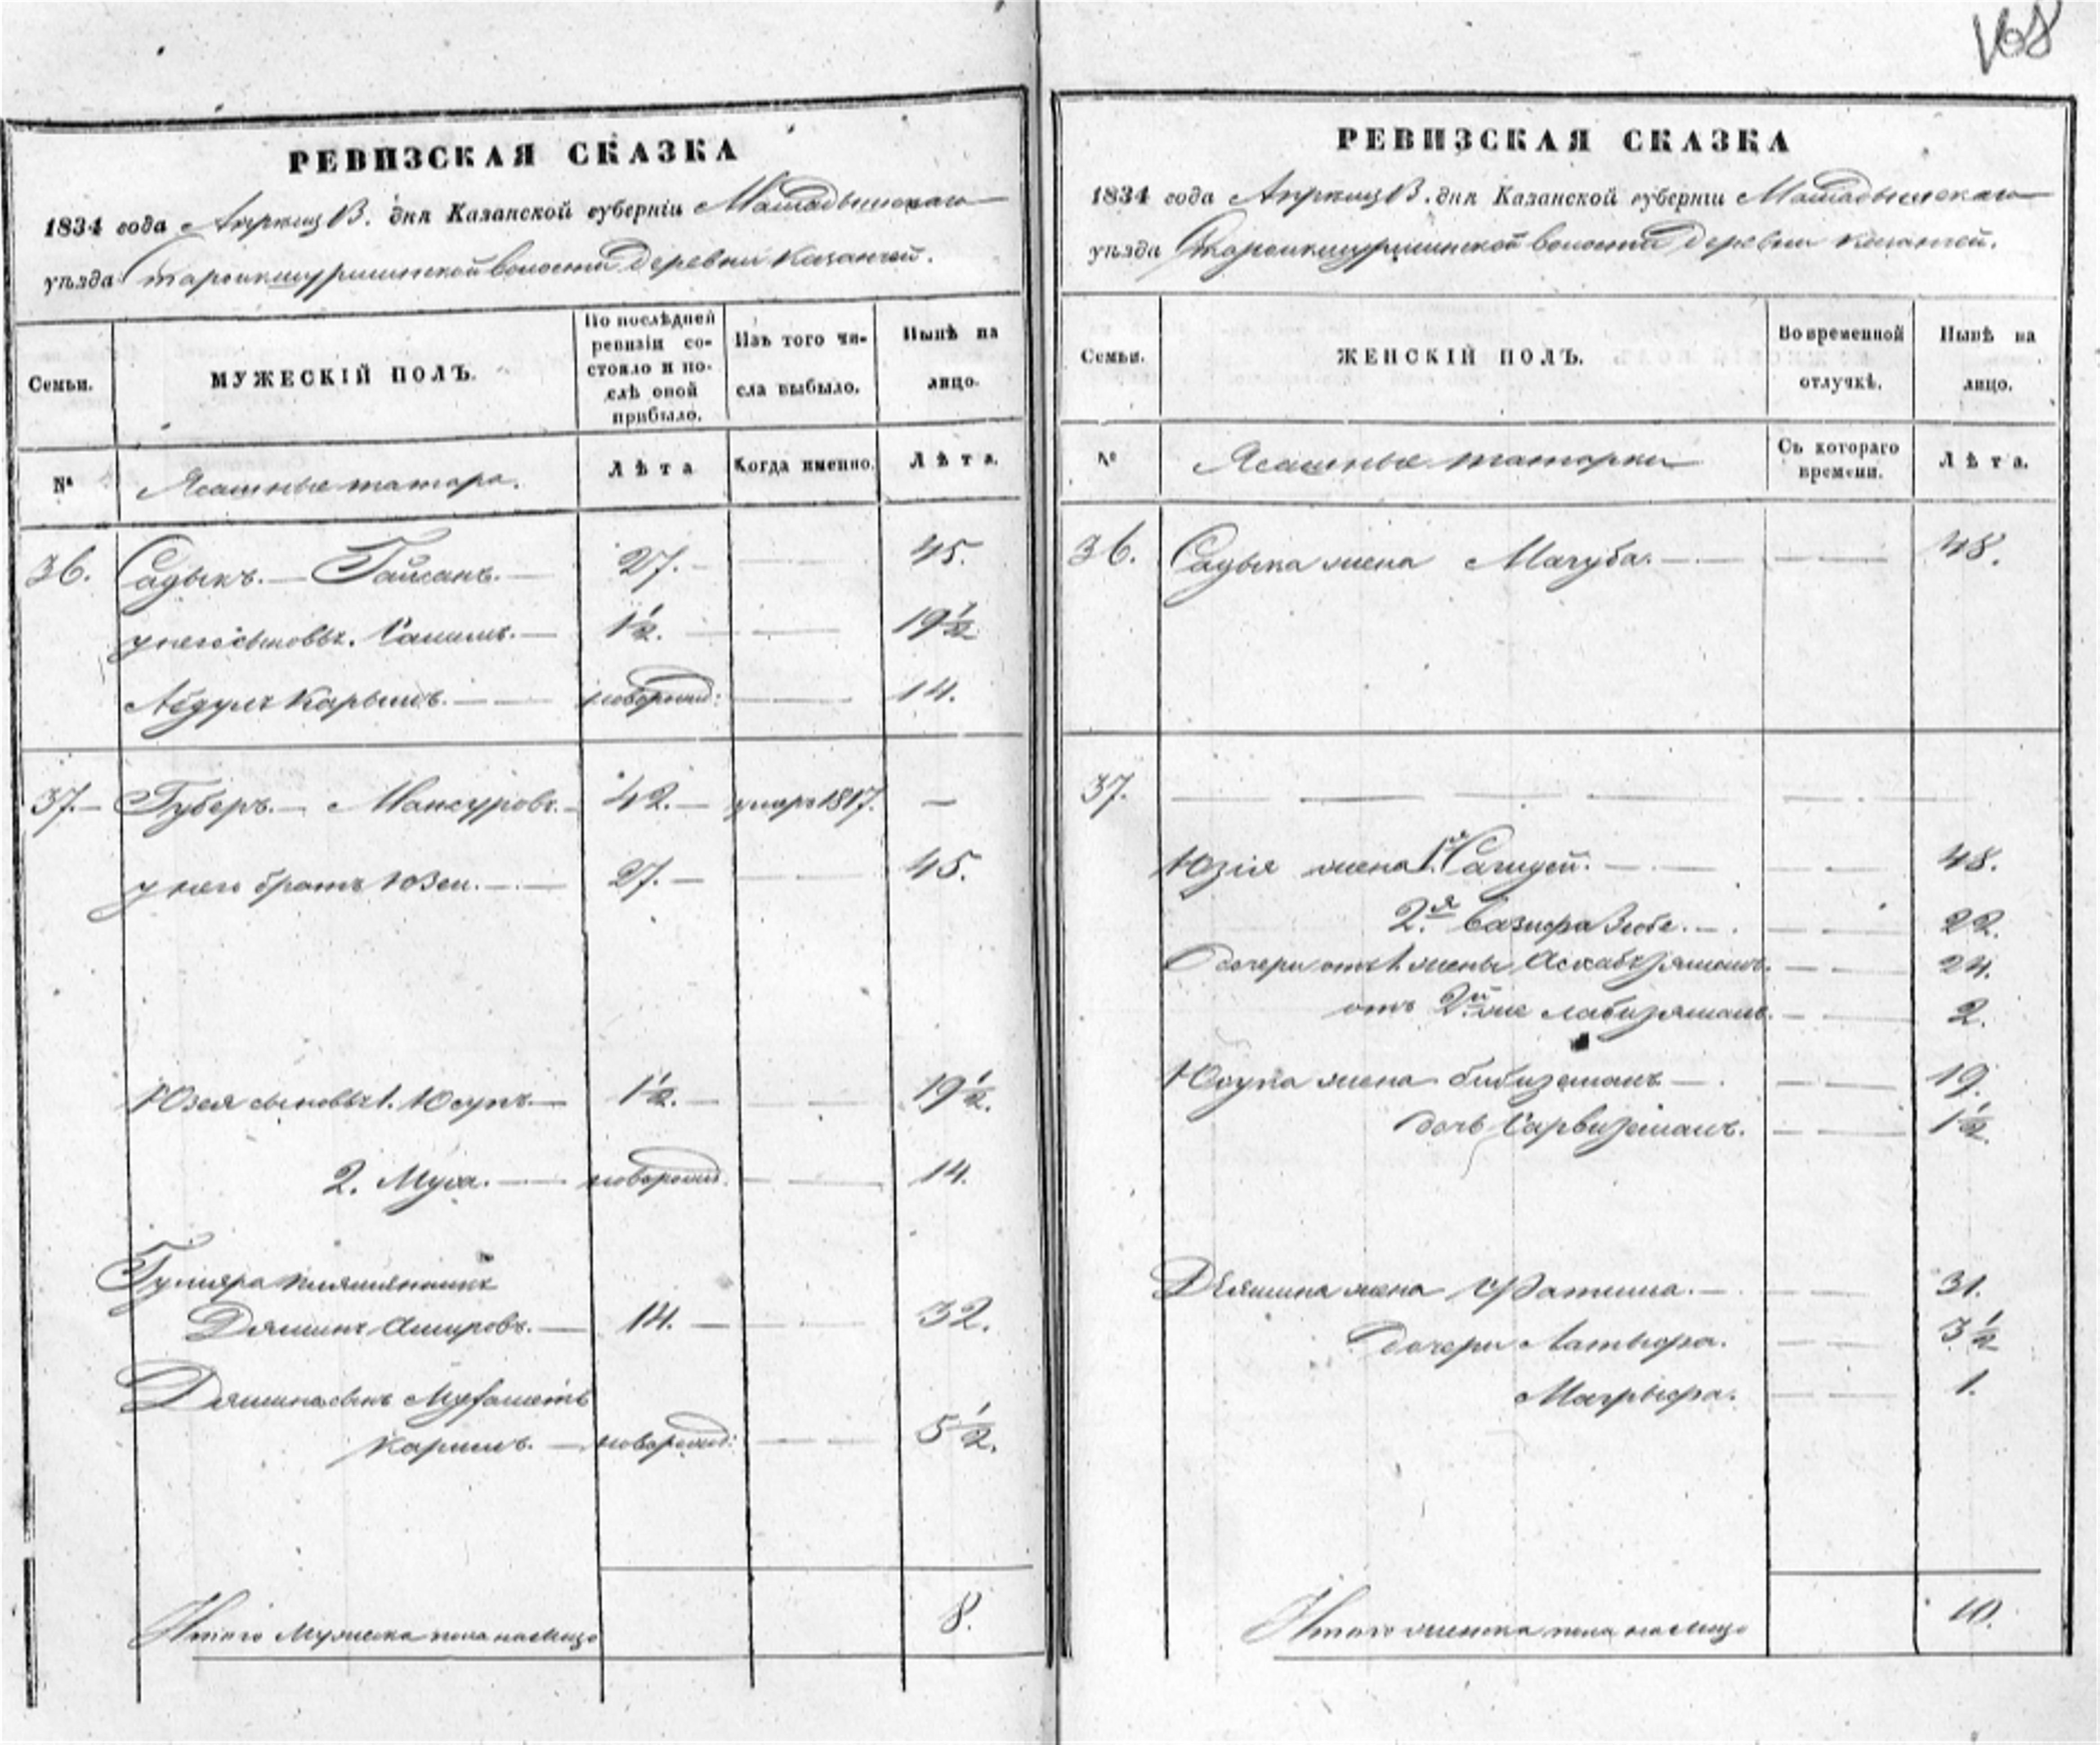 168
РЕВИЗСКАЯ СКАЗКА
1834 года Апреля В. дня Казанской губерніи Мамадышскаго
уѣзда деревни Казанчей.
Семьи.
МУЖЕСКІЙ ПОЛЪ.
По послѣдней ревизіи со-
стояло и по-
слѣ оной
прибыло.
Изъ того чи-
сла выбыло.
Нынѣ на
лицо.
№
Ясашные татара.
Лѣта
Когда именно.
Лѣта.
36. Садыкъ. — 27. — 45.
у него сыновья. Салимъ. — 1½. — 19½
Абдулъ Карымъ. — новорожд: — 14.
37. — Губеръ. — Мансуровъ. — 42. — умеръ 1817. —
у него братъ Юзей. — 27. — 45.
Юзея сыновья 1. Юсупъ — 1½. — 19½.
2. Муса. — новорожд. — 14.
племянникъ
Амировъ. — 14. — 32.
сынъ Мухаметь
Каримъ. — новорожд: — 5½.
Итого мужеска пола на лицо 8.
РЕВИЗСКАЯ СКАЗКА
1834 года Апреля В. дня Казанской губерніи Мамадышскаго
уѣзда волости деревни Казанчей.
Семьи.
ЖЕНСКІЙ ПОЛЪ.
Во временной
отлучкѣ.
Нынѣ на
лицо.
№
Ясашные татарки
Съ котораго
времени.
Лѣта.
36. Садыка жена Магуба. — 48.
37. —
Юзія жена 1.я Сагидей. — 48.
2.я — 22.
дочери отъ 1 жены — 24.
отъ 2.й же — 2.
Юсупа жена бибиземалъ — 19.
дочь Сарвиземалъ. — 1½.
жена Фатима. — 31.
дочери Латыфа. — 3½
Магрыфа. — 1.
Итого женска пола на лицо 10.